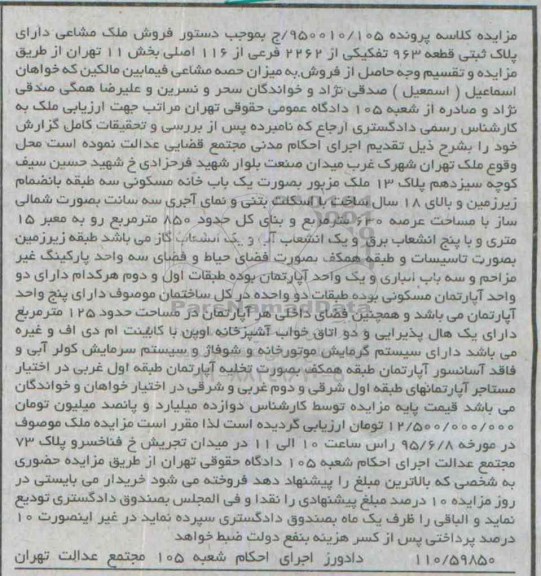 مزایده کلاسه پرونده ۹۵۰۰۱۰/۱۰۵/ج بموجب دستور فروش ملک مشاعی دارای
پلاک ثبتی قطعه ۹۶۳ تفکیکی از ۲۲۶۲ فرعی از ۱۱۶ اصلی بخش ۱۱ تهران از طریق
مزایده و تقسیم وجه حاصل از فروش به میزان حصه مشاعی فیمابین مالکین که خواهان
اسماعیل ( اسمعیل ) صدقی نژاد و خواندگان سحر و نسرین و علیرضا همگی صدقی
نژاد و صادره از شعبه ۱۰۵ دادگاه عمومی حقوقی تهران مراتب جهت ارزیابی ملک به
کارشناس رسمی دادگستری ارجاع که نامبرده پس از بررسی و تحقیقات کامل گزارش
خود را بشرح ذیل تقدیم اجرای احکام مدنی مجتمع قضایی عدالت نموده است محل
وقوع ملک تهران شهرک غرب میدان صنعت بلوار شهید فرحزادی خ شهید حسین سیف
کوچه سیزدهم پلاک ۱۳ ملک مزبور بصورت یک باب خانه مسکونی سه طبقه بانضمام
زیرزمین و بالای ۱۸ سال ساخت با اسکلت بتنی و نمای آجری سه سانت بصورت شمالی
ساز با مساحت عرصه ۶۲۰ مترمربع و بنای کل حدود ۸۵۰ مترمربع رو به معبر ۱۵
متری و با پنج انشعاب برق و یک انشعاب آب و یک انشعاب گاز می باشد طبقه زیرزمین
بصورت تاسیسات و طبقه همکف بصورت فضای حیاط و فضای سه واحد پارکینگ غیر
مزاحم و سه باب انباری و یک واحد آپارتمان بوده طبقات اول و دوم هرکدام دارای دو
واحد آپارتمان مسکونی بوده طبقات دو واحده در کل ساختمان موصوف دارای پنج واحد
آپارتمان می باشد و همچنین فضای داخلی هر آپارتمان در مساحت حدود ۱۲۵ مترمربع
دارای یک هال پذیرایی و دو اتاق خواب آشپزخانه اوپن با کابینت ام دی اف و غیره
می باشد دارای سیستم گرمایش موتورخانه و شوفاژ و سیستم سرمایش کولر آبی و
فاقد آسانسور آپارتمان طبقه همکف بصورت تخلیه آپارتمان طبقه اول غربی در اختیار
مستاجر آپارتمانهای طبقه اول شرقی و دوم غربی و شرقی در اختیار خواهان و خواندگان
می باشد قیمت پایه مزایده توسط کارشناس دوازده میلیارد و پانصد میلیون تومان
۱۲/۵۰۰/۰۰۰/۰۰۰ تومان ارزیابی گردیده است لذا مقرر است مزایده ملک موصوف
در مورخه ۹۵/۶/۸ راس ساعت ۱۰ الی ۱۱ در میدان تجریش خ فناخسرو پلاک ۷۳
مجتمع عدالت اجرای احکام شعبه ۱۰۵ دادگاه حقوقی تهران از طریق مزایده حضوری
به شخصی که بالاترین مبلغ را پیشنهاد دهد فروخته می شود خریدار می بایستی در
روز مزایده ۱۰ درصد مبلغ پیشنهادی را نقدا و فی المجلس بصندوق دادگستری تودیع
نماید و الباقی را ظرف یک ماه بصندوق دادگستری سپرده نماید در غیر اینصورت ۱۰
درصد پرداختی پس از کسر هزینه بنفع دولت ضبط خواهد
۱۱۰/۵۹۸۵۰ دادورز اجرای احکام شعبه ۱۰۵ مجتمع عدالت تهران